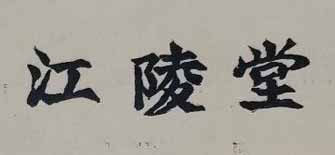 江陵堂